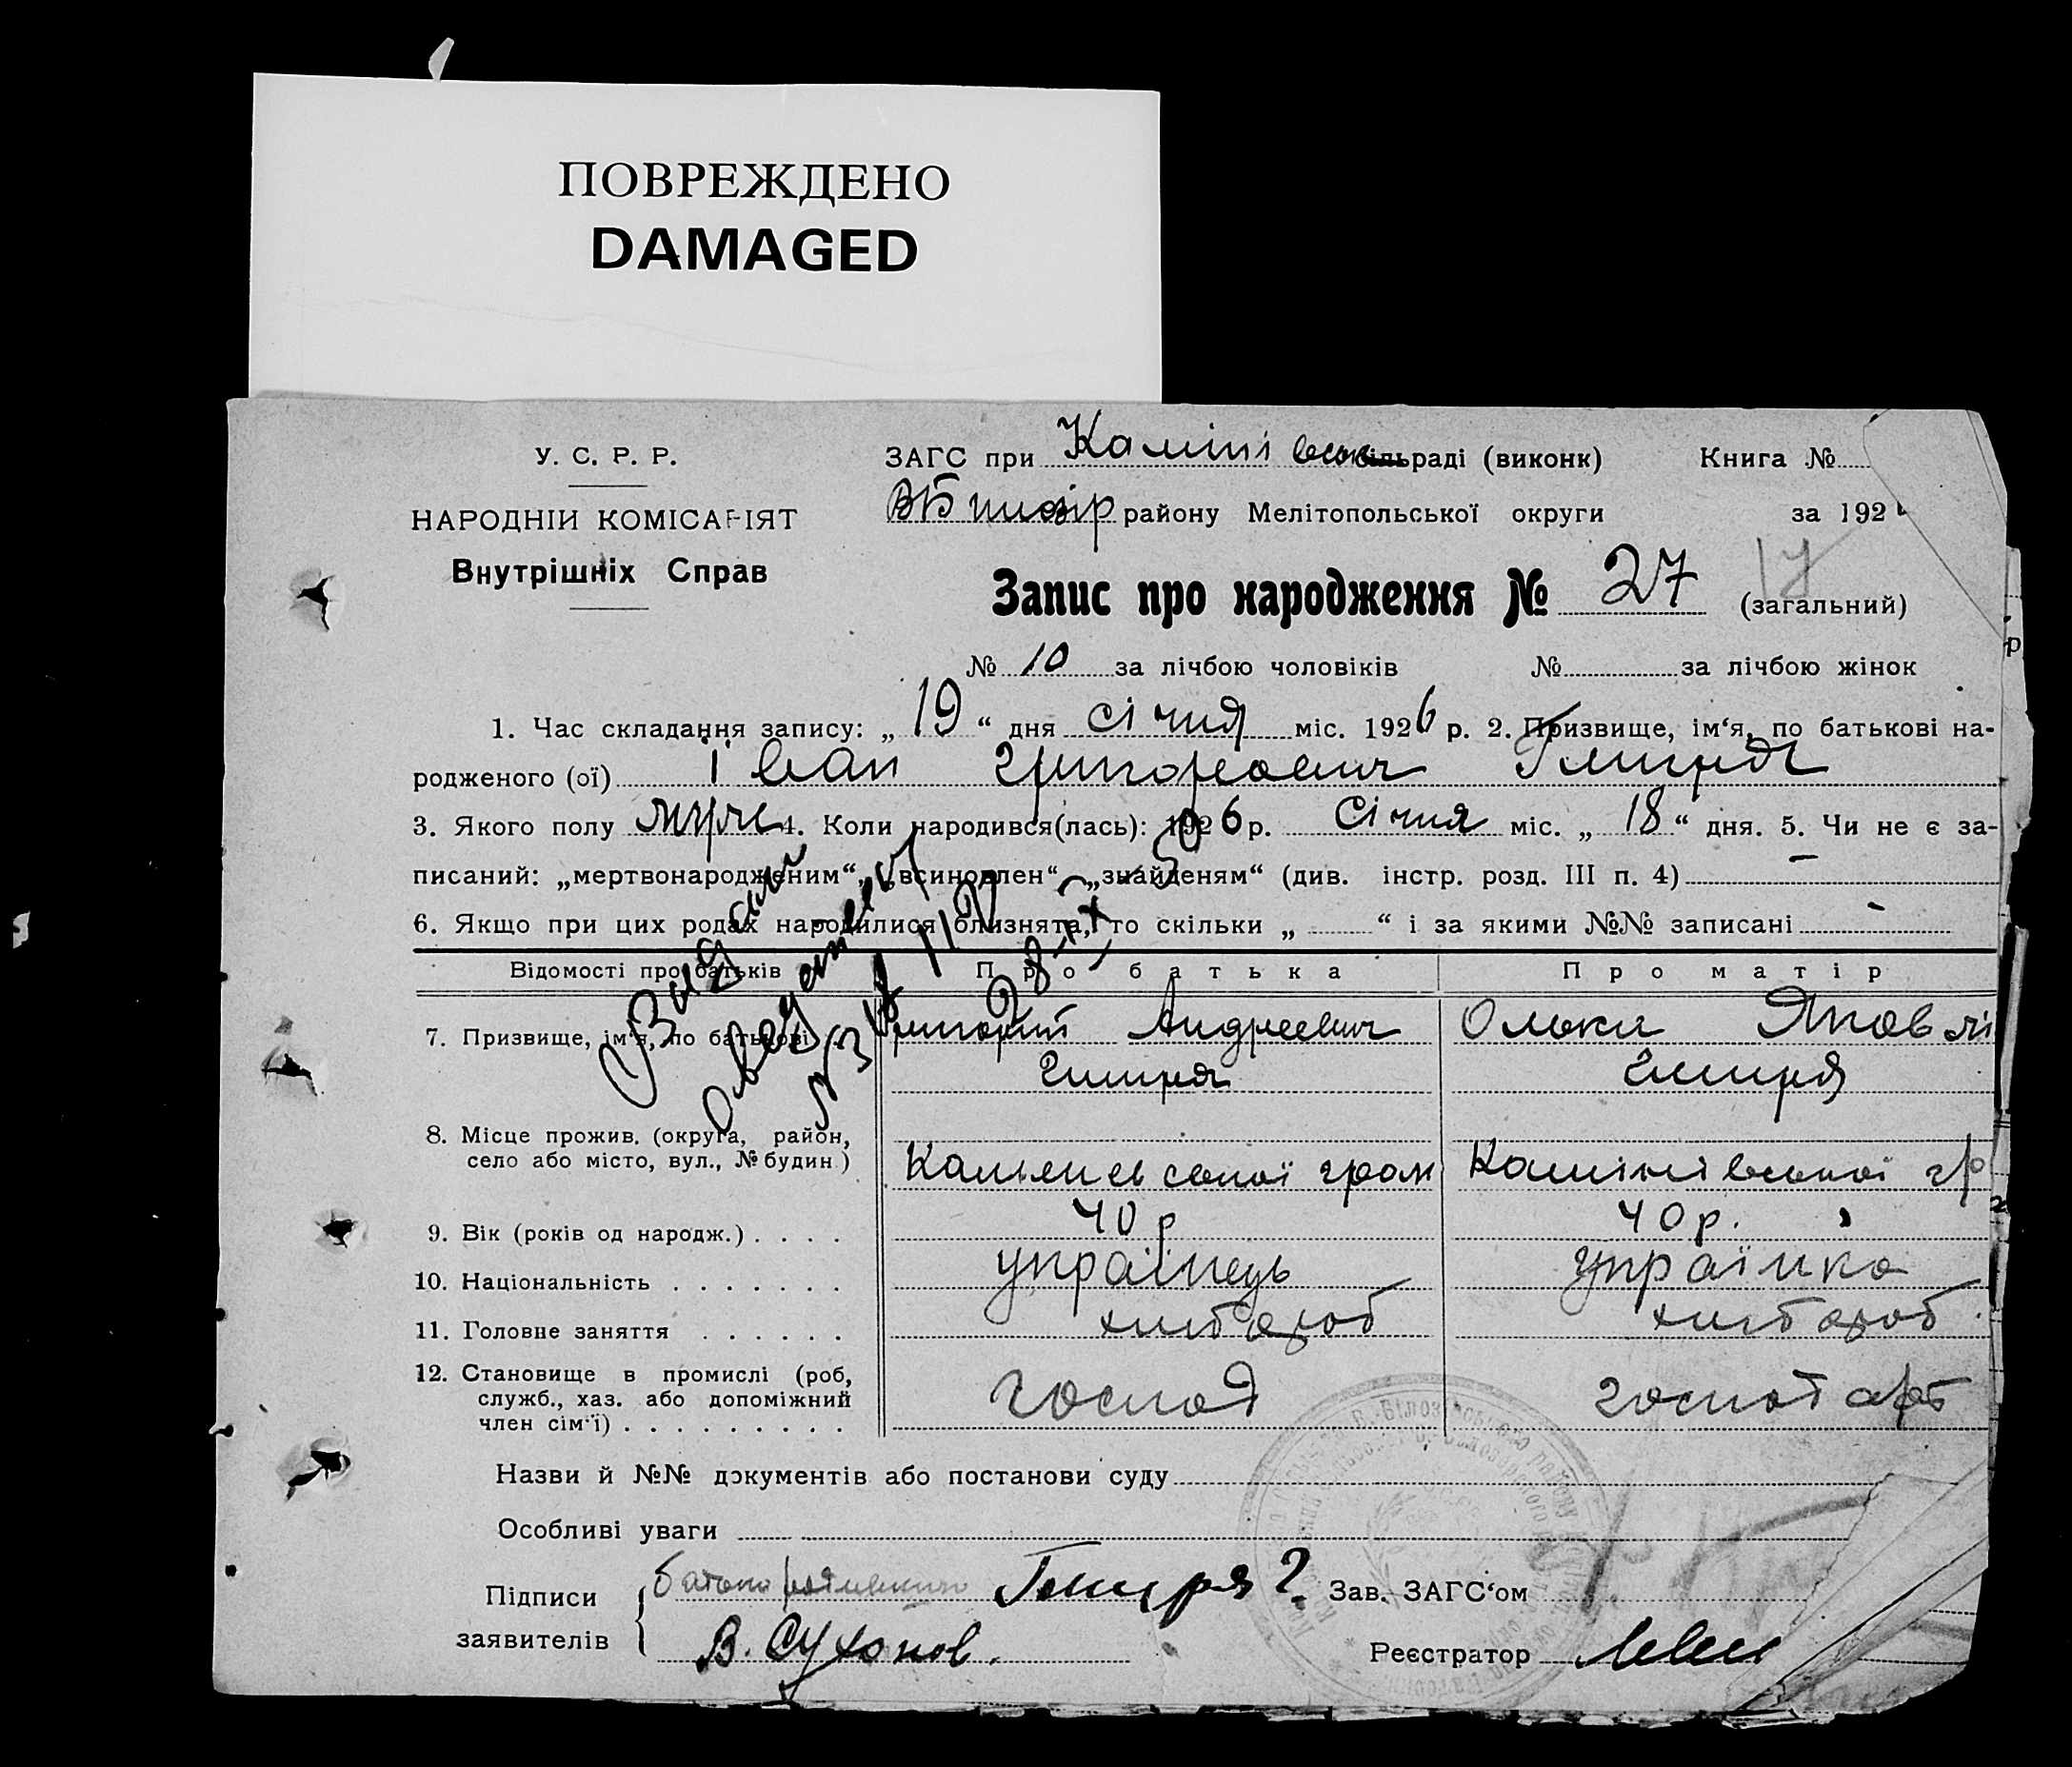 ПОВРЕЖДЕНО
DAMAGED
У. С. Р. Р.
НАРОДНІЙ КОМІСАРІЯТ
Внутрішніх Справ
ЗАГС при Камінівськ сільраді (виконк) Книга №
району Мелітопольської округи за 192
Запис про народження № 27 (загальний)
17
№ 10 за лічбою чоловіків № за лічбою жінок
1. Час складання запису: „ 19 “ дня січня міс. 1926 р. 2. Призвище, ім‘я, по батькові на-
родженого (ої) Іван Григорович Гмиря
3. Якого полу 4. Коли народився(лась): 1926 р. Січня міс. „ 18 “ дня. 5. Чи не є за-
писаний: „мертвонародженим“, „всиновлен“, „знайденям“ (див. інстр. розд. III п. 4) —
6. Якщо при цих родах народилися близнята, то скільки „ “ і за якими №№ записані -
Відомості про батьків Про батька Про матір
7. Призвище, ім‘я, по батькові Григорій Андреевич Олька Яковлі
Гмиря Гмиря
8. Місце прожив. (округа, район,
село або місто, вул., № будин.) Каменевської гром Камінівської гр
9. Вік (років од народж.) . . . . 40 р 40 р.
10. Національність . . . . . . . українець українка
11. Головне заняття . . . . . . хлібороб хлібороб
12. Становище в промислі (роб,
служб., хаз. або допоміжний
член сім‘ї) . . . . . . . . . господ господарь
Назви й №№ документів або постанови суду
Особливі уваги
Підписи
заявителів
батько Гмиря Г Зав. ЗАГС‘ом
В. Сухонов. Реєстратор